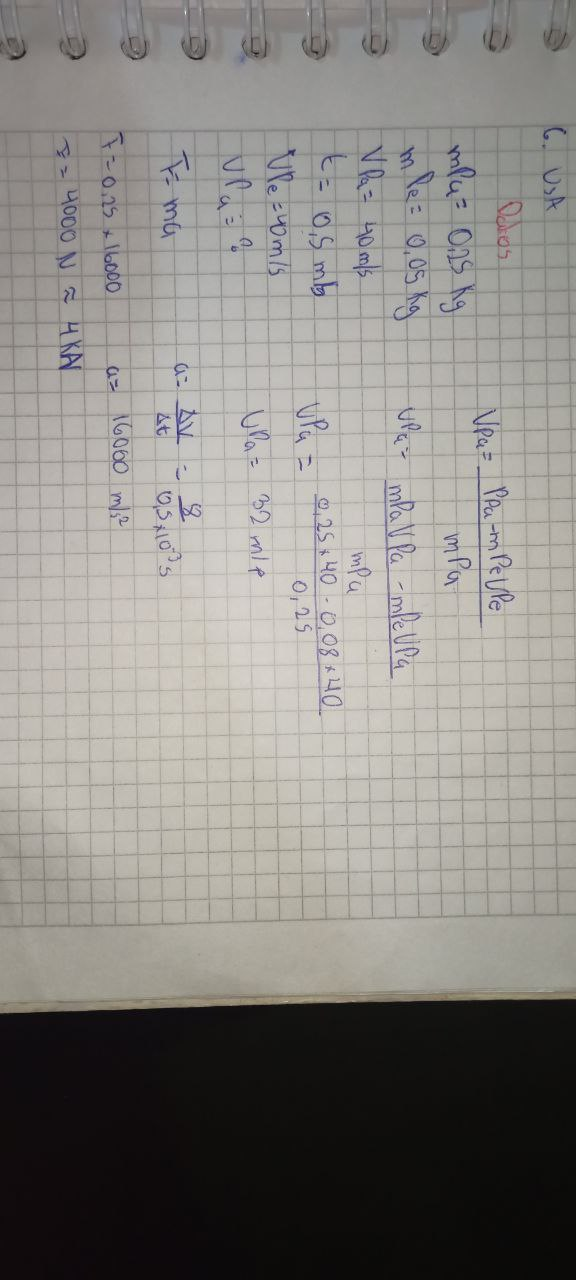 6. USA
Datos
mPa = 0,25 Kg
mPe = 0,05 Kg
VPa = 40 m/s
t = 0,5 ms
VPe = 40 m/s
VPa = ?
VPa = PPa - mPeVPe / mPa
VPa = mPaVPa - mPeVPa / mPa
VPa = 0,25 × 40 - 0,08 × 40 / 0,25
VPa = 32 m/s
F = ma
a = ΔV / Δt = 8 / 0,5 × 10⁻³ s
F = 0,25 × 16000
a = 16000 m/s²
F = 4000 N ≈ 4 KN